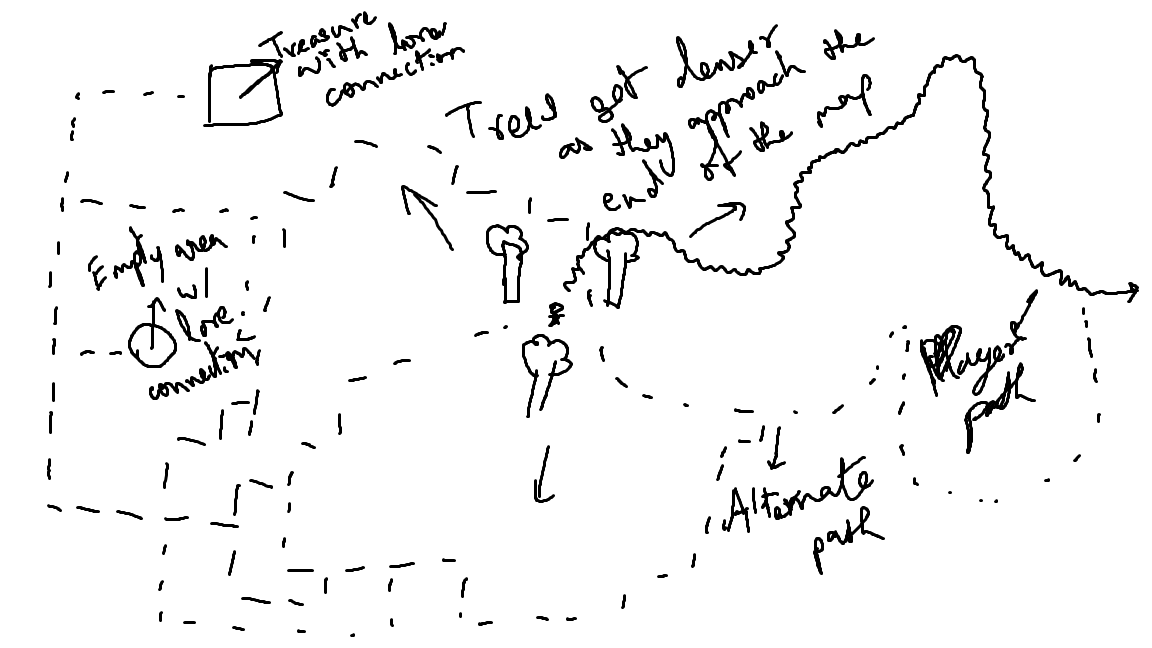 Treasure
with lore
connection
Trees get denser
as they approach the
end of the map
Empty area
w/
lore
connection
Player
path
Alternate
path